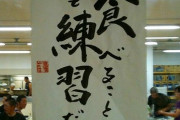 食べること
も練習だ